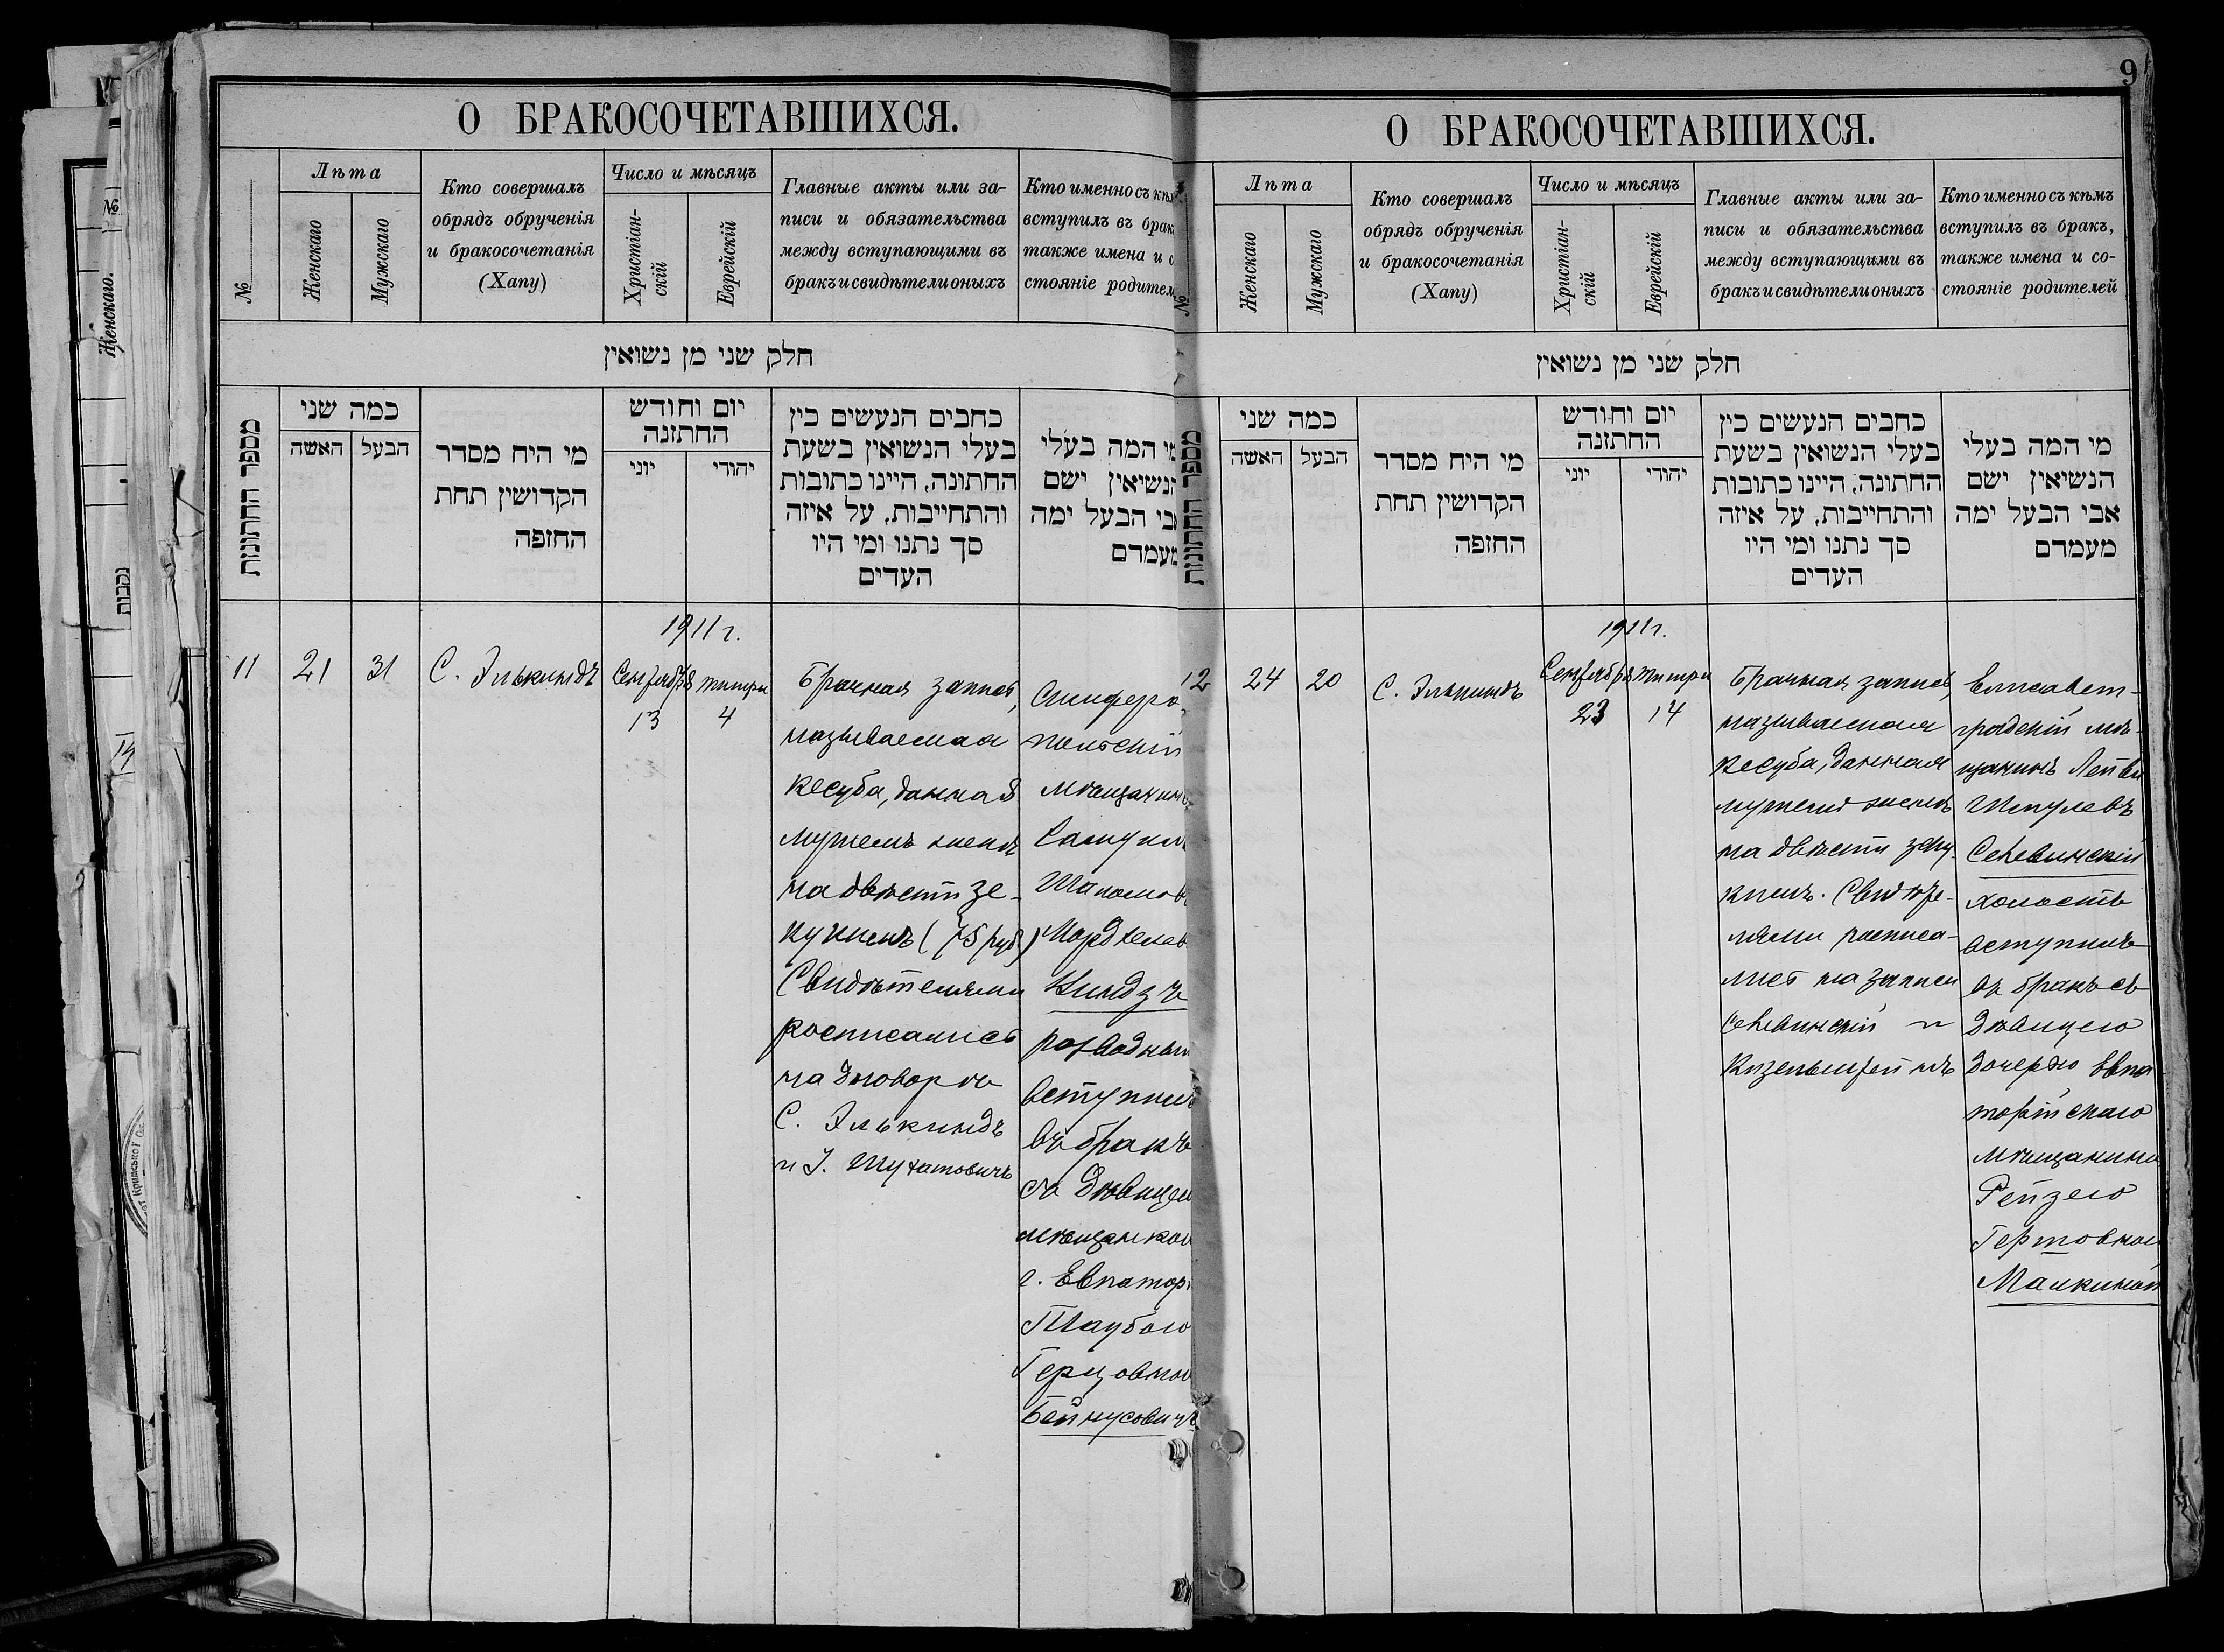 О БРАКОСОЧЕТАВШИХСЯ.
№
Лѣта
Женскаго
Мужскаго
Кто совершалъ
обрядъ обрученія
и бракосочетанія
(Хапу)
Число и мѣсяцъ
Христіан-
скій
Еврейскій
Главные акты или за-
писи и обязательства
между вступающими въ
бракъ и свидѣтели оныхъ
Кто именно съ кѣм
вступилъ въ брак
также имена и с
стояніе родител
חלק שני מן נשואין
מספר החתונות
כמה שני
האשה
הבעל
מי היח מסדר
הקדושין תחת
החזפה
יום וחודש
החתזנה
יוני
יהודי
כחבים הנעשים כין
בעלי הנשואין בשעת
החתונה, היינו כתובות
והתחייבות, על איזה
סך נתנו ומי היו
העדים
מי המה בעלי
הנשיאין ישם
אבי הבעל ימה
מעמדם
1911 г.
11
21
31
С. Элькиндъ
Сентября
13
тишри
4
Брачная запись,
называемая
кесуба, данная
мужемъ женѣ
на двѣсти зе-
кукимъ (75 руб.)
Свидѣтелями
росписались
на договорѣ
С. Элькиндъ
и І.
Симферо-
польскій
мѣщанинъ
Самуил
Шаломов
Мордхелев
Киндзъ
разводный
вступилъ
въ бракъ
съ дѣвицей
мѣщанкой
г. Евпатор
Таубою
Герцовной
Бейнусовичъ
9
О БРАКОСОЧЕТАВШИХСЯ.
№
Лѣта
Женскаго
Мужскаго
Кто совершалъ
обрядъ обрученія
и бракосочетанія
(Хапу)
Число и мѣсяцъ
Христіан-
скій
Еврейскій
Главные акты или за-
писи и обязательства
между вступающими въ
бракъ и свидѣтели оныхъ
Кто именно съ кѣмъ
вступилъ въ бракъ,
также имена и со-
стояніе родителей
חלק שני מן נשואין
מספר החתונות
כמה שני
האשה
הבעל
מי היח מסדר
הקדושין תחת
החזפה
יום וחודש
החתזנה
יוני
יהודי
כחבים הנעשים כין
בעלי הנשואין בשעת
החתונה, היינו כתובות
והתחייבות, על איזה
סך נתנו ומי היו
העדים
מי המה בעלי
הנשיאין ישם
אבי הבעל ימה
מעמדם
1911 г.
12
24
20
С. Элькиндъ
Сентября
23
тишри
14
Брачная запись,
называемая
кесуба, данная
мужемъ женѣ
на двѣсти зеку-
кимъ. Свидѣте-
лями росписа-
лись на записи
Сенявинскій и
Елисавет-
градскій мѣ-
щанинъ Лейви
Шмулевъ
Сенявинскій
холостъ
вступилъ
въ бракъ съ
дѣвицею
дочерью Евпа
торійскаго
мѣщанина
Рейзею
Гертовной
Малкиной